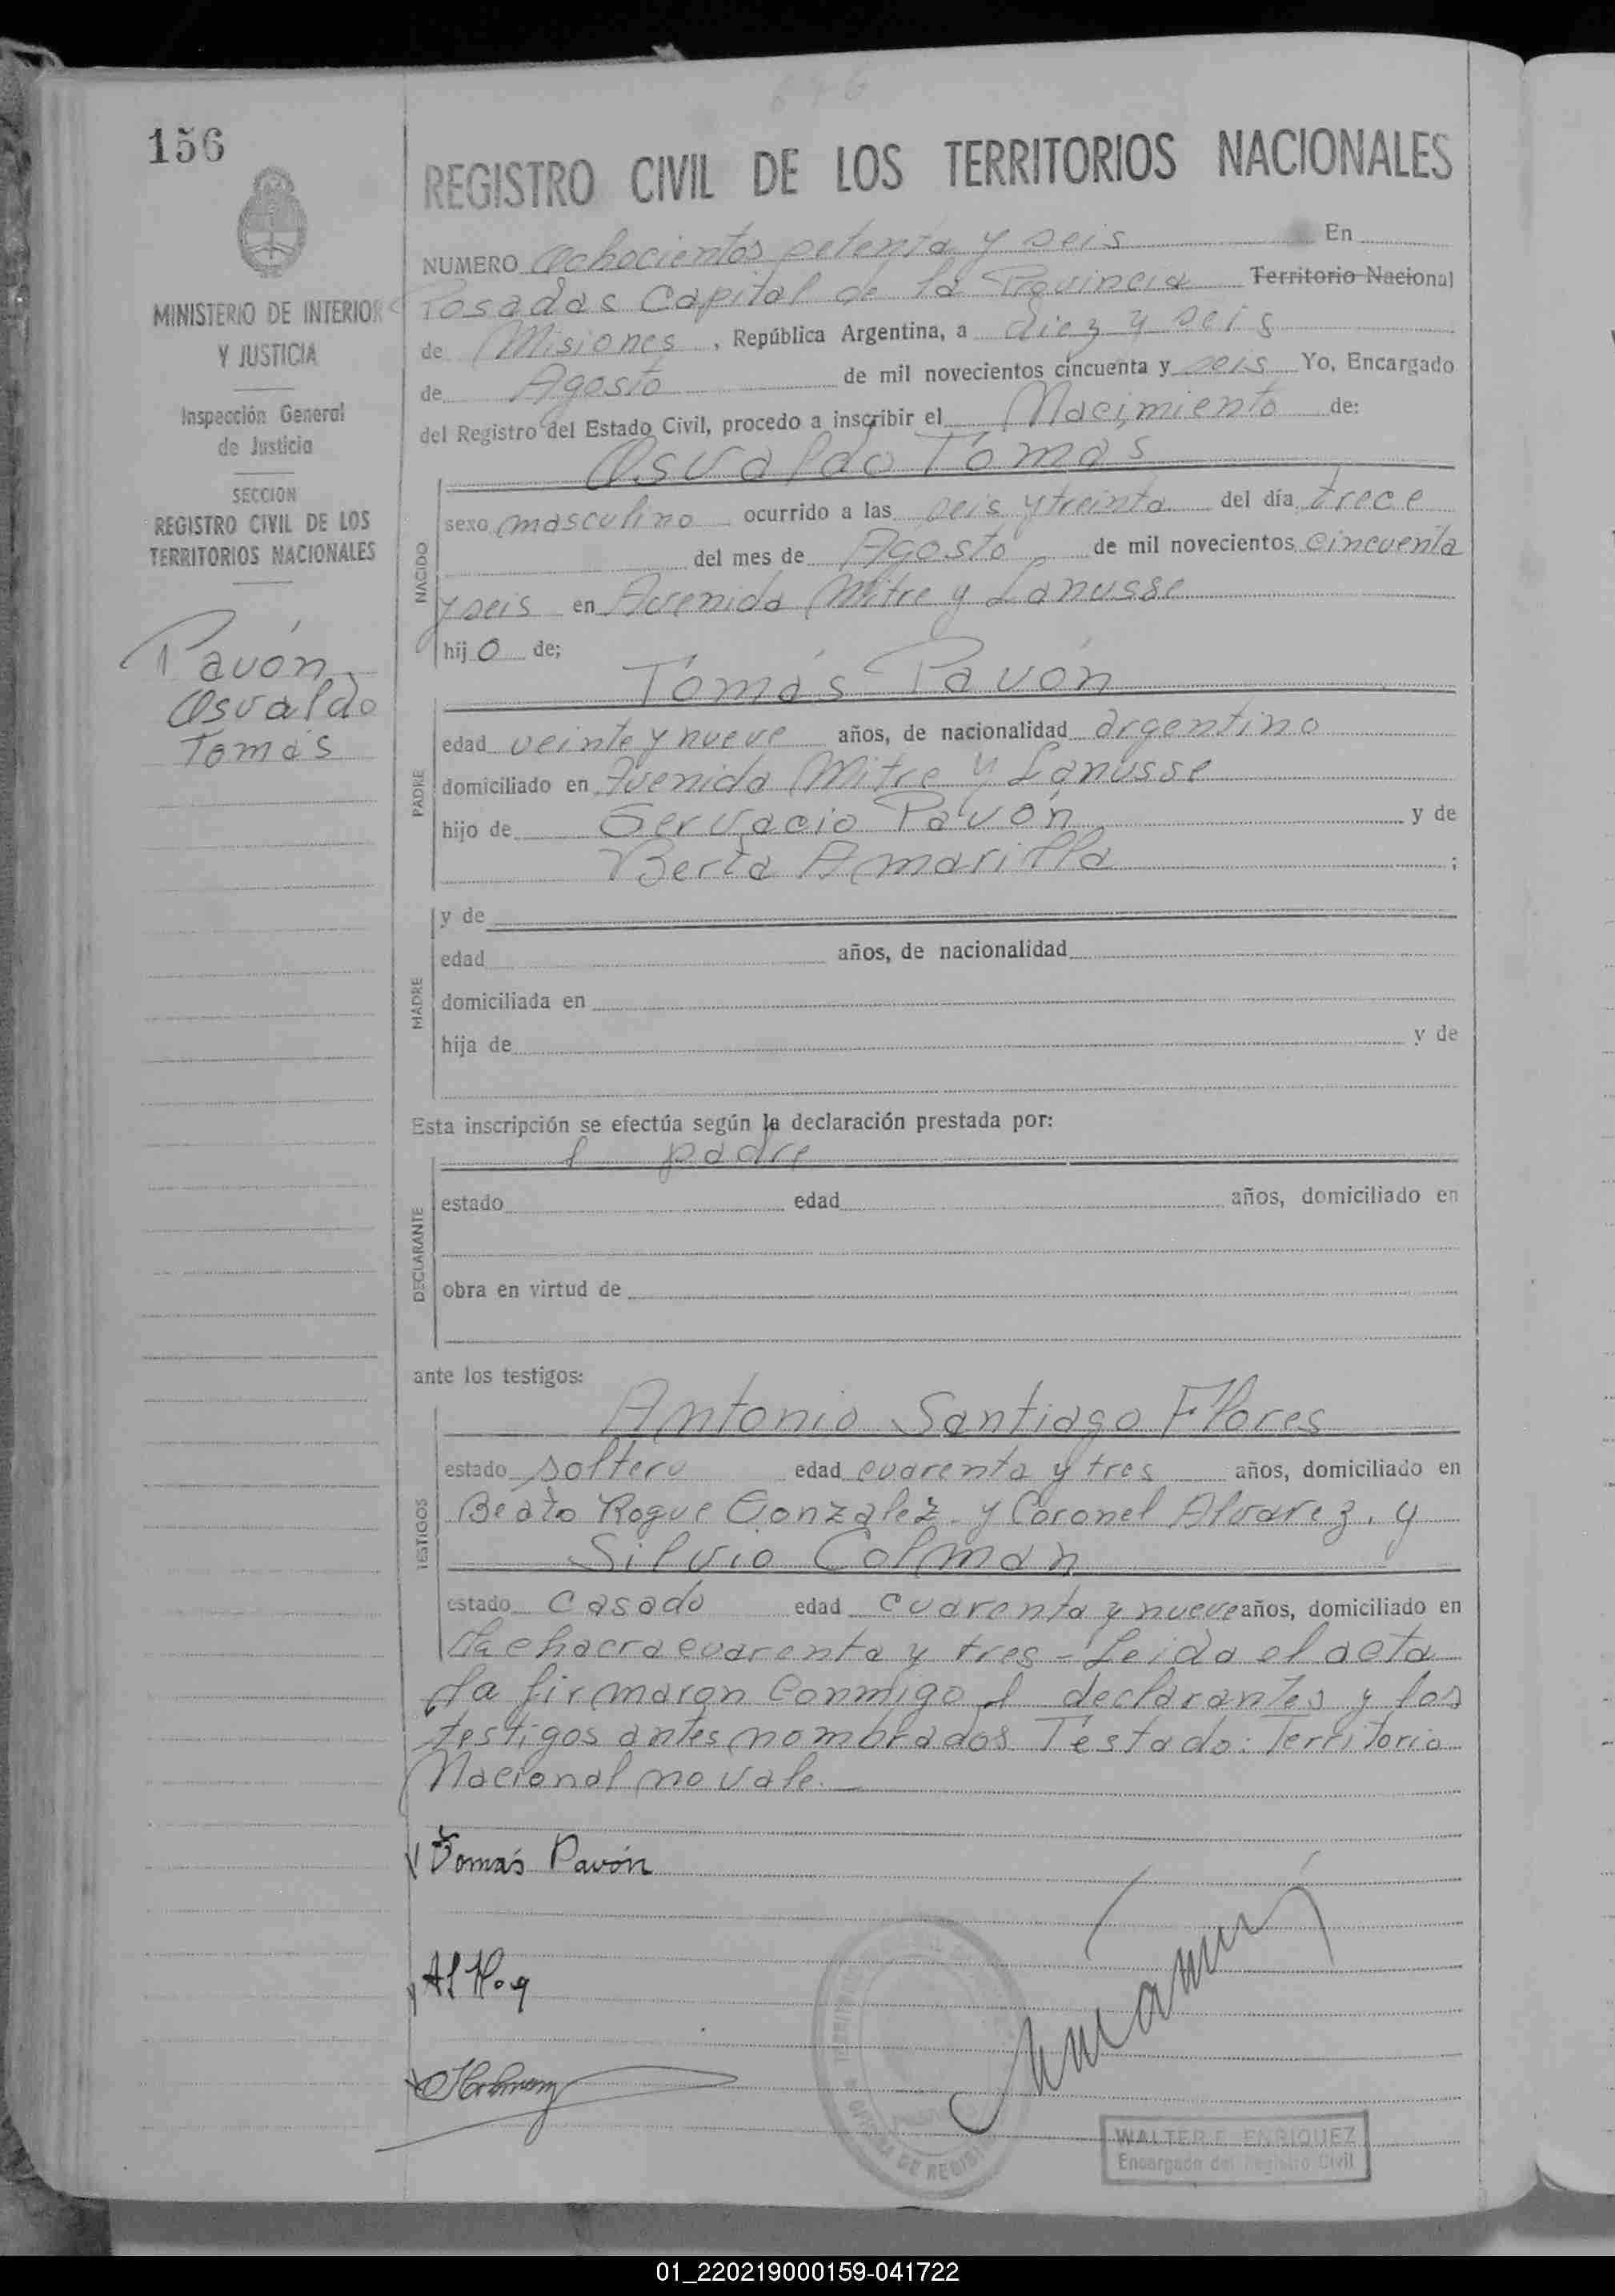 156
MINISTERIO DE INTERIOR
Y JUSTICIA
Inspección General
de Justicia
SECCION
REGISTRO CIVIL DE LOS
TERRITORIOS NACIONALES
Pavón
Osvaldo
Tomás
REGISTRO CIVIL DE LOS TERRITORIOS NACIONALES
NUMERO Ochocientos setenta y seis En
Posadas Capital de la Provincia Territorio Nacional
de Misiones, República Argentina, a diez y seis
de Agosto de mil novecientos cincuenta y seis Yo, Encargado
del Registro del Estado Civil, procedo a inscribir el Nacimiento de:
Osvaldo Tomás
NACIDO
sexo masculino ocurrido a las seis y treinta del día trece
del mes de Agosto de mil novecientos cincuenta
y seis en Avenida Mitre y Lanusse
hijo de;
Tomás Pavón
PADRE
edad veinte y nueve años, de nacionalidad argentino
domiciliado en Avenida Mitre y Lanusse
hijo de Gervacio Pavón y de
Berta Amarilla ;
MADRE
y de
edad años, de nacionalidad
domiciliada en
hija de y de
Esta inscripción se efectúa según la declaración prestada por:
l padre
DECLARANTE
estado edad años, domiciliado en
obra en virtud de
ante los testigos:
Antonio Santiago Flores
TESTIGOS
estado soltero edad cuarenta y tres años, domiciliado en
Beato Roque Gonzalez y Coronel Alvarez, y
Silvio Colman
estado casado edad cuarenta y nueve años, domiciliado en
la chacra cuarenta y tres - Leida el acta
la firmaron conmigo el declarantes y los
testigos antes nombrados Testado: Territorio
Nacional no vale.
Tomás Pavón
WALTER E. ENRIQUEZ
Encargado del Registro Civil
01_220219000159-041722